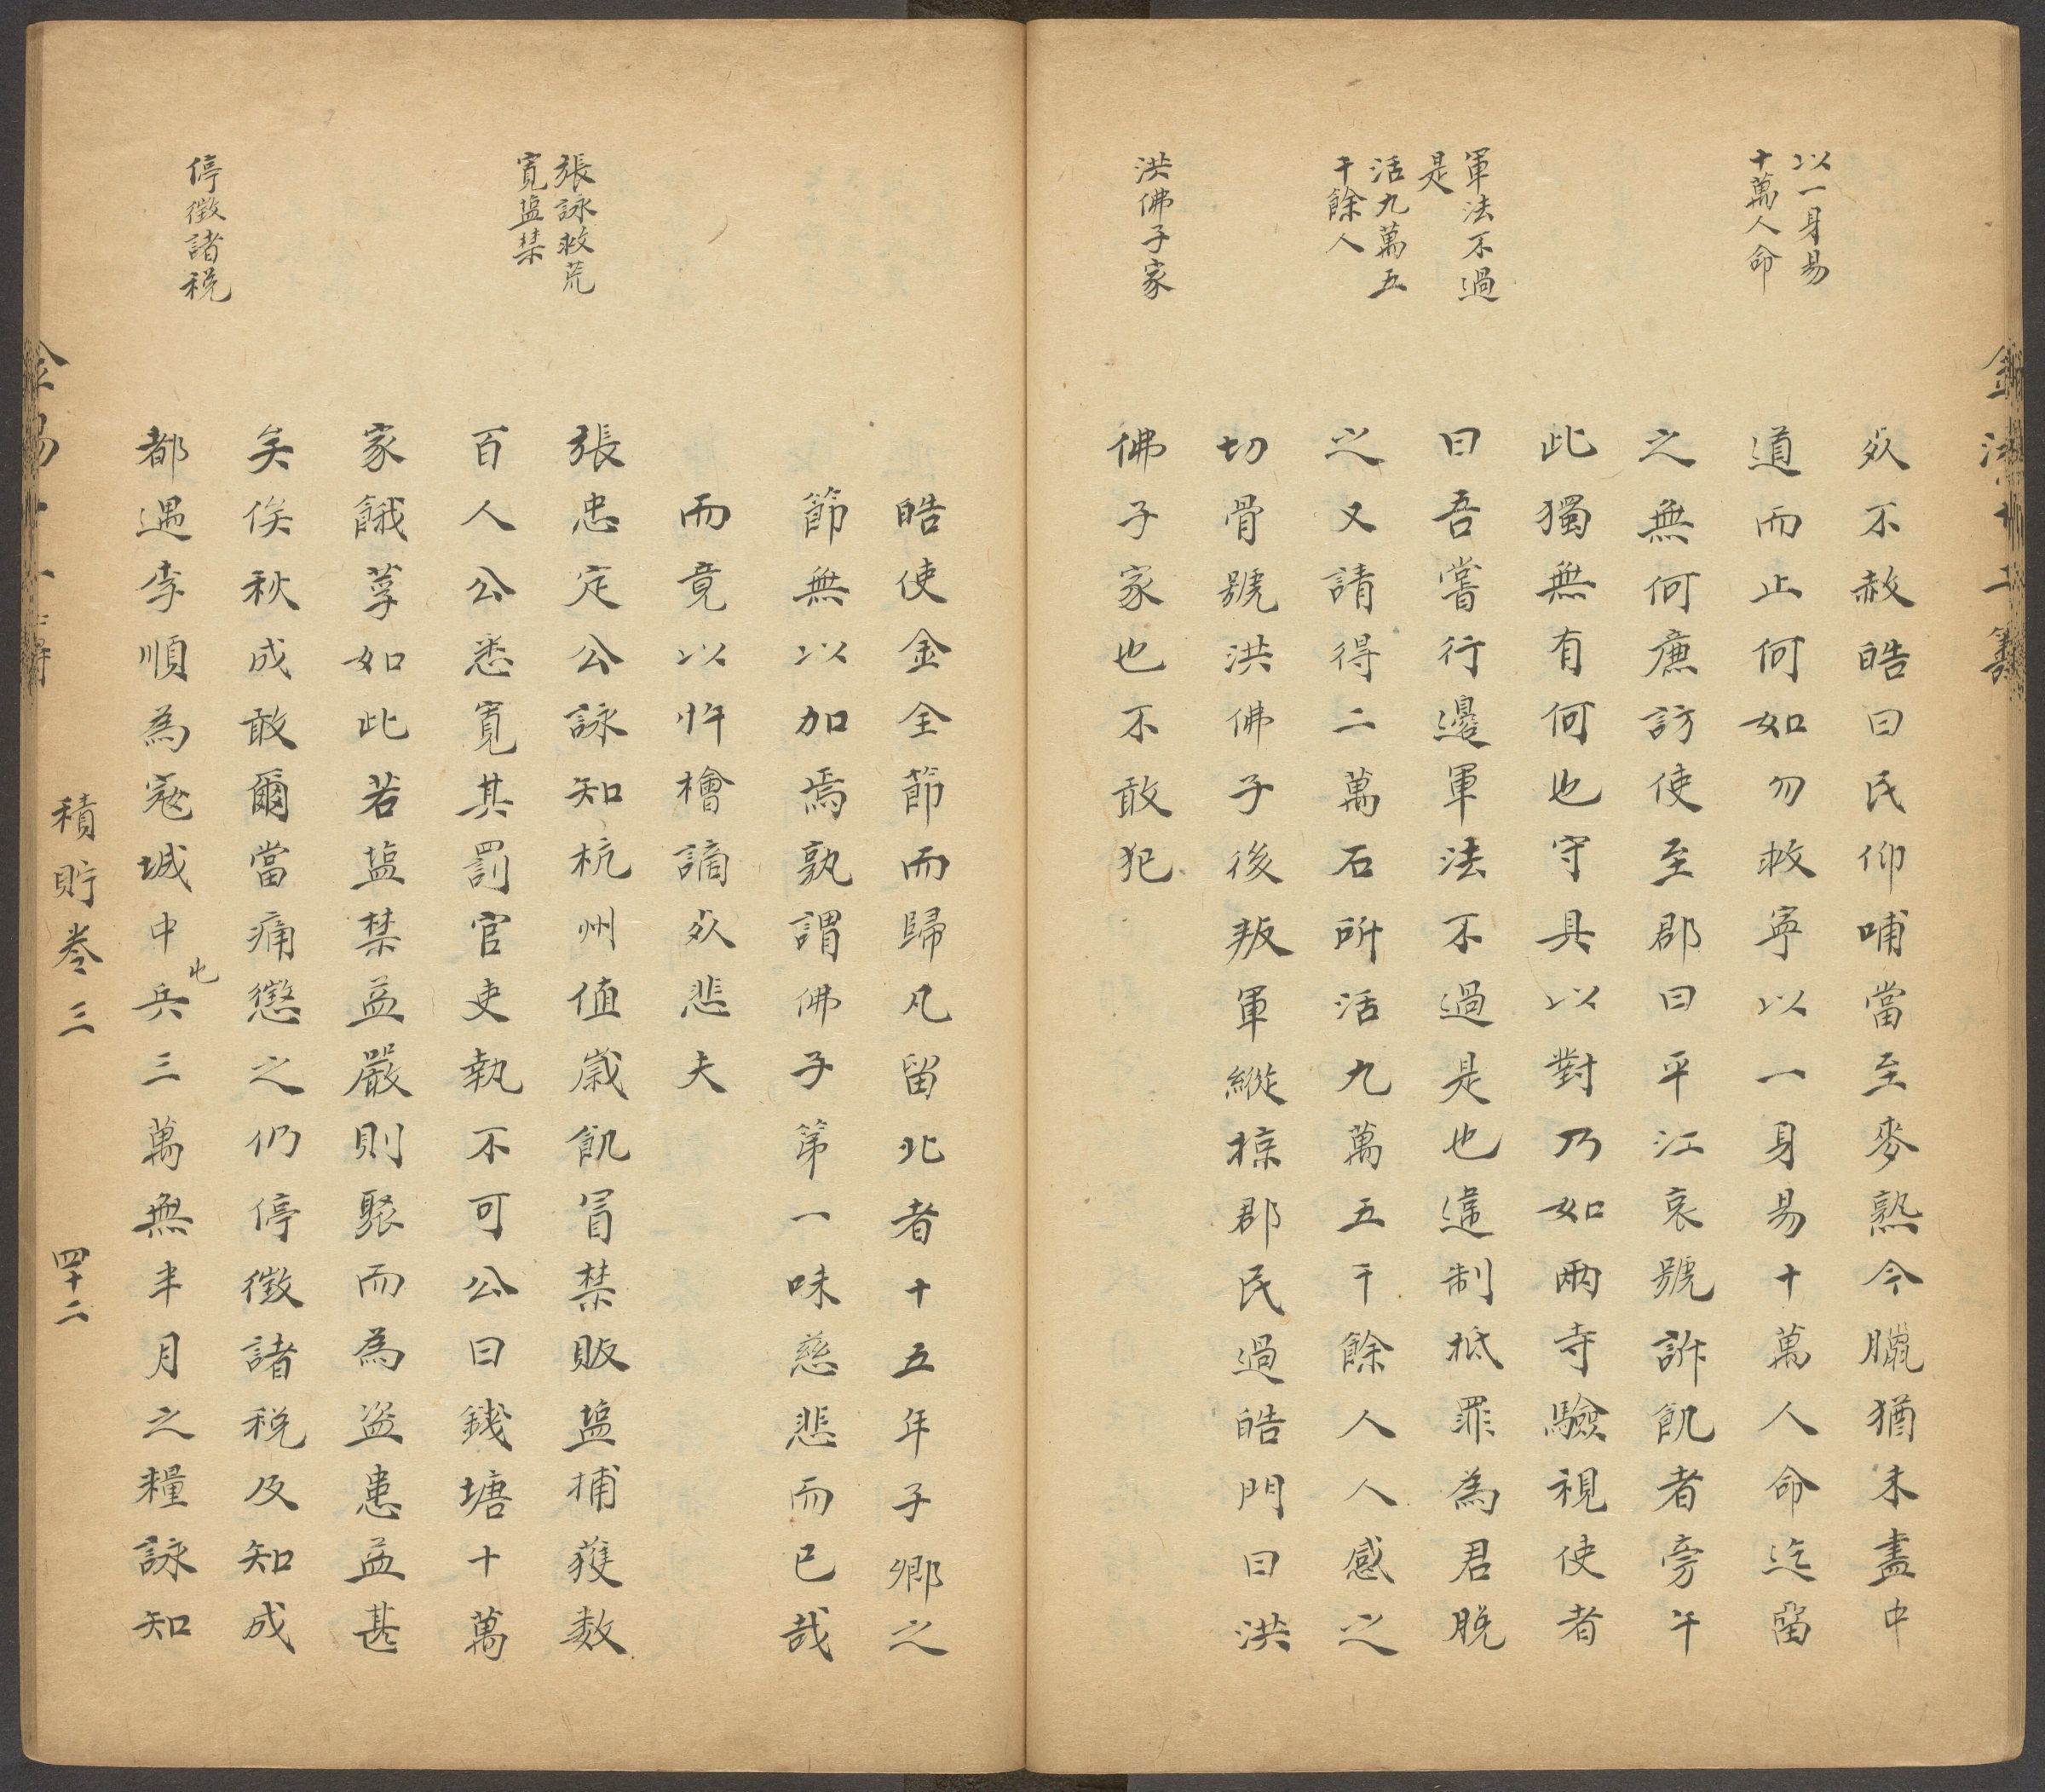 以一身易
十萬人命
軍法不過
是
活九萬五
千餘人
洪佛子家
㸚不赦皓曰民仰哺當至麥熟今臘猶未盡中
道而止何如勿救寧以一身易十萬人命迄留
之無何廉訪使至郡曰平江哀號訴飢者旁午
此獨無有何也守具以對乃如兩寺驗視使者
曰吾嘗行邊軍法不過是也違制抵罪為君脫
之又請得二萬石所活九萬五千餘人人感之
切骨號洪佛子後叛軍縱掠郡民過皓門曰洪
佛子家也不敢犯
張詠救荒
寬盐禁
停徵諸稅
皓使金全節而歸凡留北者十五年子卿之
節無以加焉孰謂佛子第一味慈悲而已哉
而竟以忤檜謫㸚悲夫
張忠定公詠知杭州值歲飢冒禁販盐捕獲数
百人公悉寬其罰官吏執不可公曰錢塘十萬
家餓莩如此若盐禁益嚴則聚而為盜患益甚
矣俟秋成敢爾當痛懲之仍停徵諸稅及知成
都遇李順為寇城中屯兵三萬無半月之糧詠知
積貯卷三
四十二